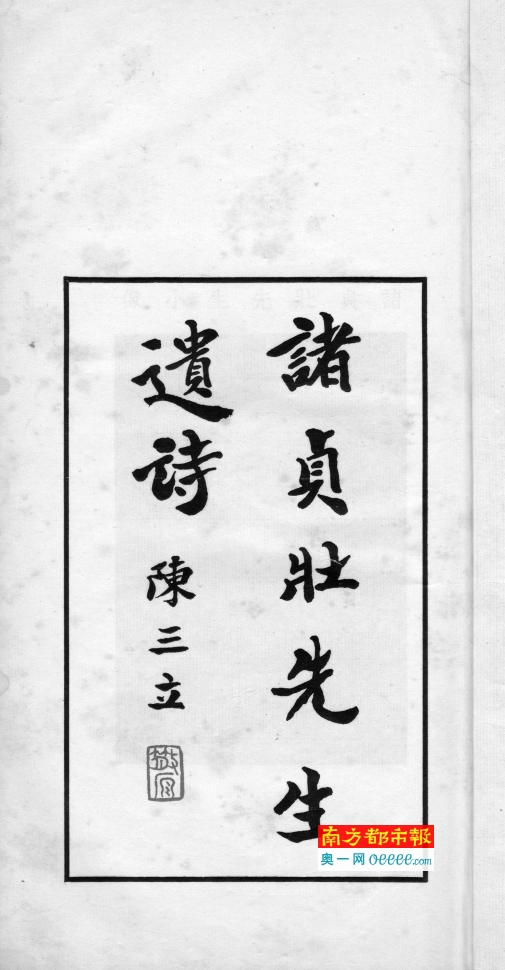 諸貞壯先生
遺詩
陳三立
散原
南方都市報
奥一网 oeeee.com